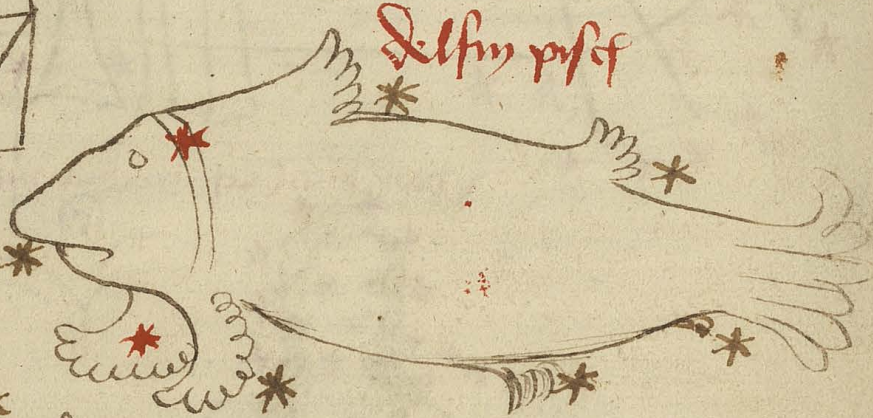 delfin pisch